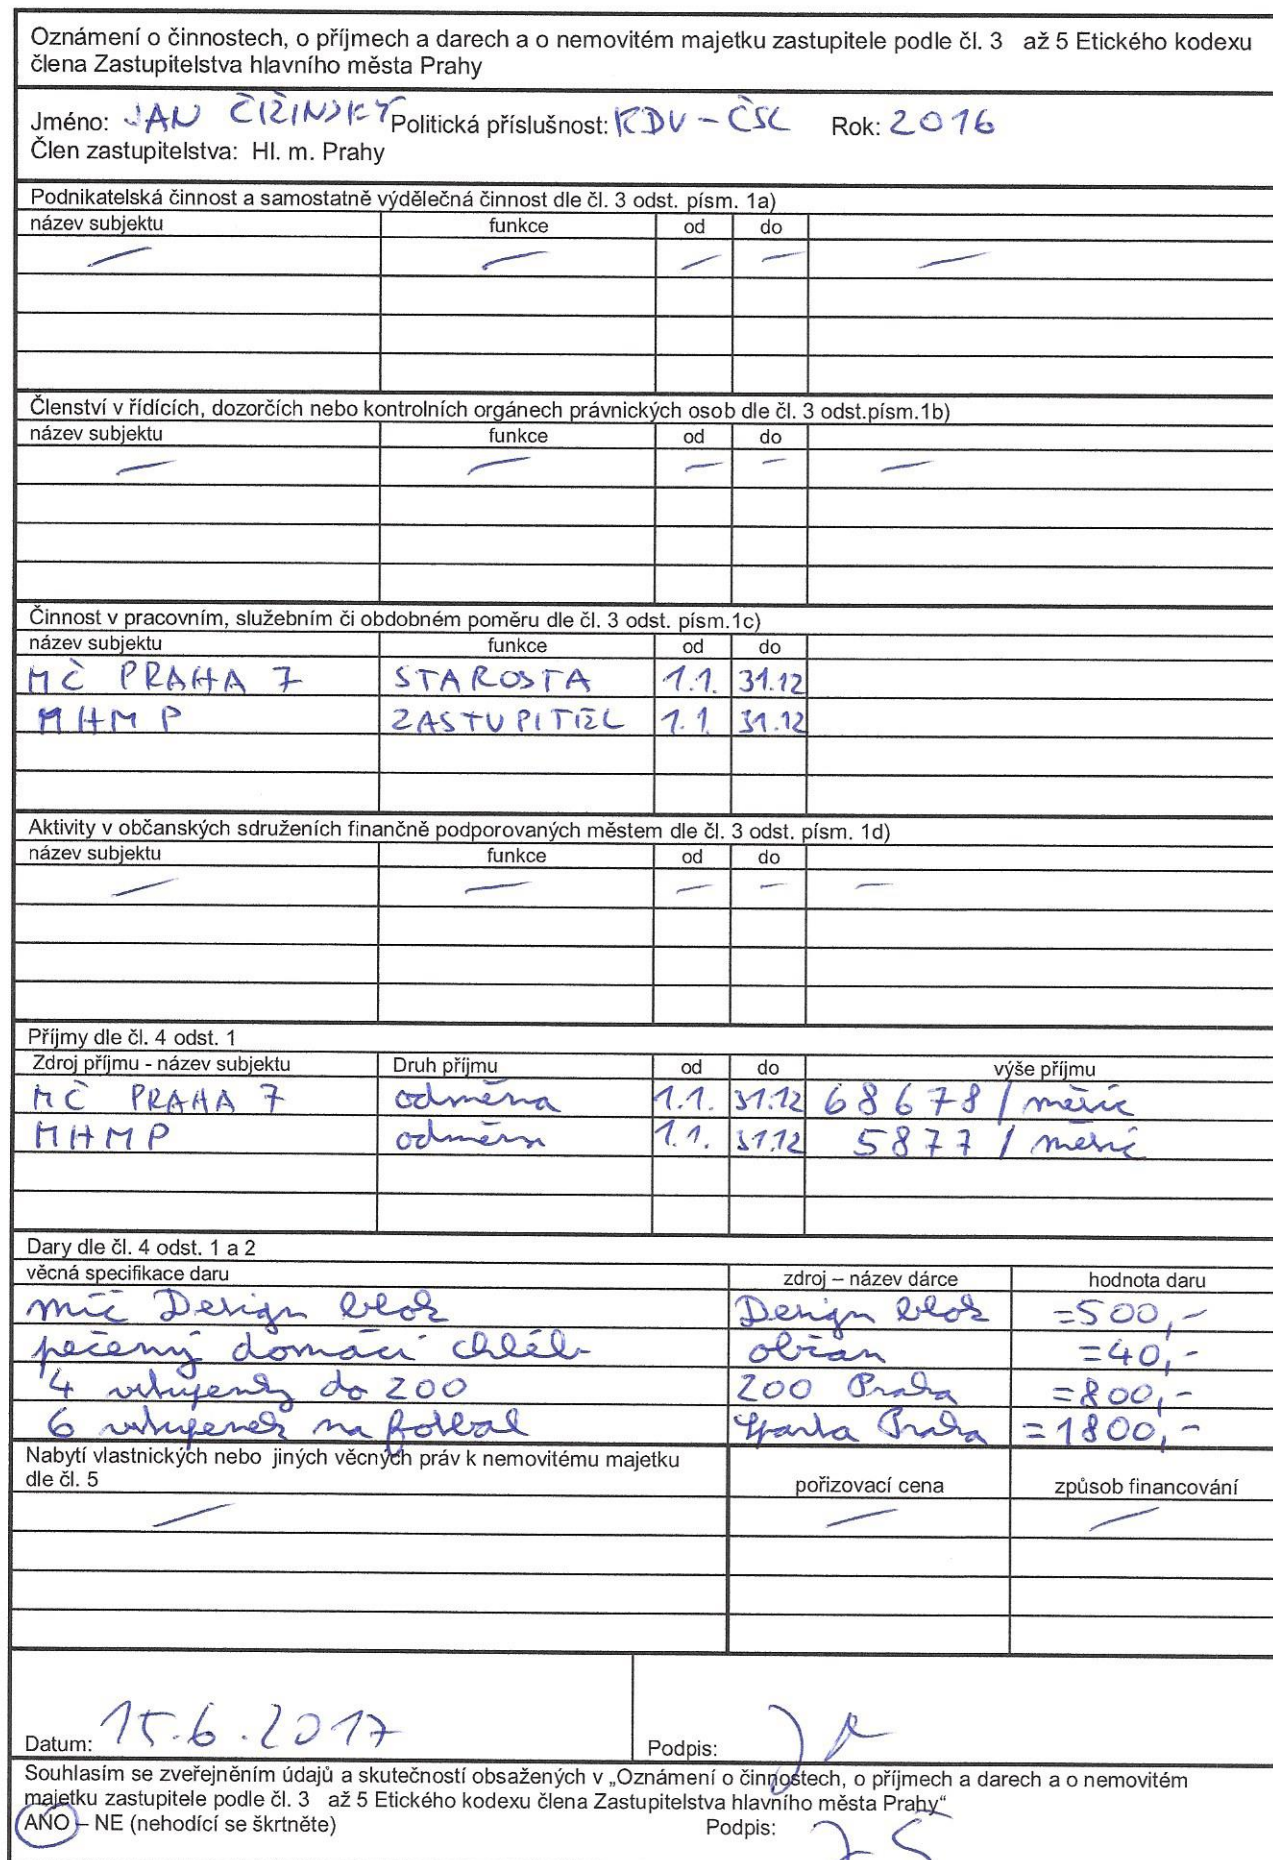 Oznámení o činnostech, o příjmech a darech a o nemovitém majetku zastupitele podle čl. 3 až 5 Etického kodexu
člena Zastupitelstva hlavního města Prahy
Jméno: JAN ČIŽINSKÝ Politická příslušnost: KDU-ČSL Rok: 2016
Člen zastupitelstva: Hl. m. Prahy
Podnikatelská činnost a samostatně výdělečná činnost dle čl. 3 odst. písm. 1a)
název subjektu funkce od do
— — — — —
Členství v řídících, dozorčích nebo kontrolních orgánech právnických osob dle čl. 3 odst.písm.1b)
název subjektu funkce od do
— — — — —
Činnost v pracovním, služebním či obdobném poměru dle čl. 3 odst. písm.1c)
název subjektu funkce od do
MČ PRAHA 7 STAROSTA 1.1. 31.12
MHMP ZASTUPITEL 1.1. 31.12
Aktivity v občanských sdruženích finančně podporovaných městem dle čl. 3 odst. písm. 1d)
název subjektu funkce od do
— — — — —
Příjmy dle čl. 4 odst. 1
Zdroj příjmu - název subjektu Druh příjmu od do výše příjmu
MČ PRAHA 7 odměna 1.1. 31.12 68678 / měsíc
MHMP odměna 1.1. 31.12 5877 / měsíc
Dary dle čl. 4 odst. 1 a 2
věcná specifikace daru zdroj – název dárce hodnota daru
míč Design blok Design blok =500,-
pečený domácí chléb občan =40,-
4 vstupenky do ZOO ZOO Praha =800,-
6 vstupenek na fotbal Sparta Praha =1800,-
Nabytí vlastnických nebo jiných věcných práv k nemovitému majetku
dle čl. 5 pořizovací cena způsob financování
— — —
Datum: 15.6.2017 Podpis:
Souhlasím se zveřejněním údajů a skutečností obsažených v „Oznámení o činnostech, o příjmech a darech a o nemovitém
majetku zastupitele podle čl. 3 až 5 Etického kodexu člena Zastupitelstva hlavního města Prahy“
ANO – NE (nehodící se škrtněte) Podpis: